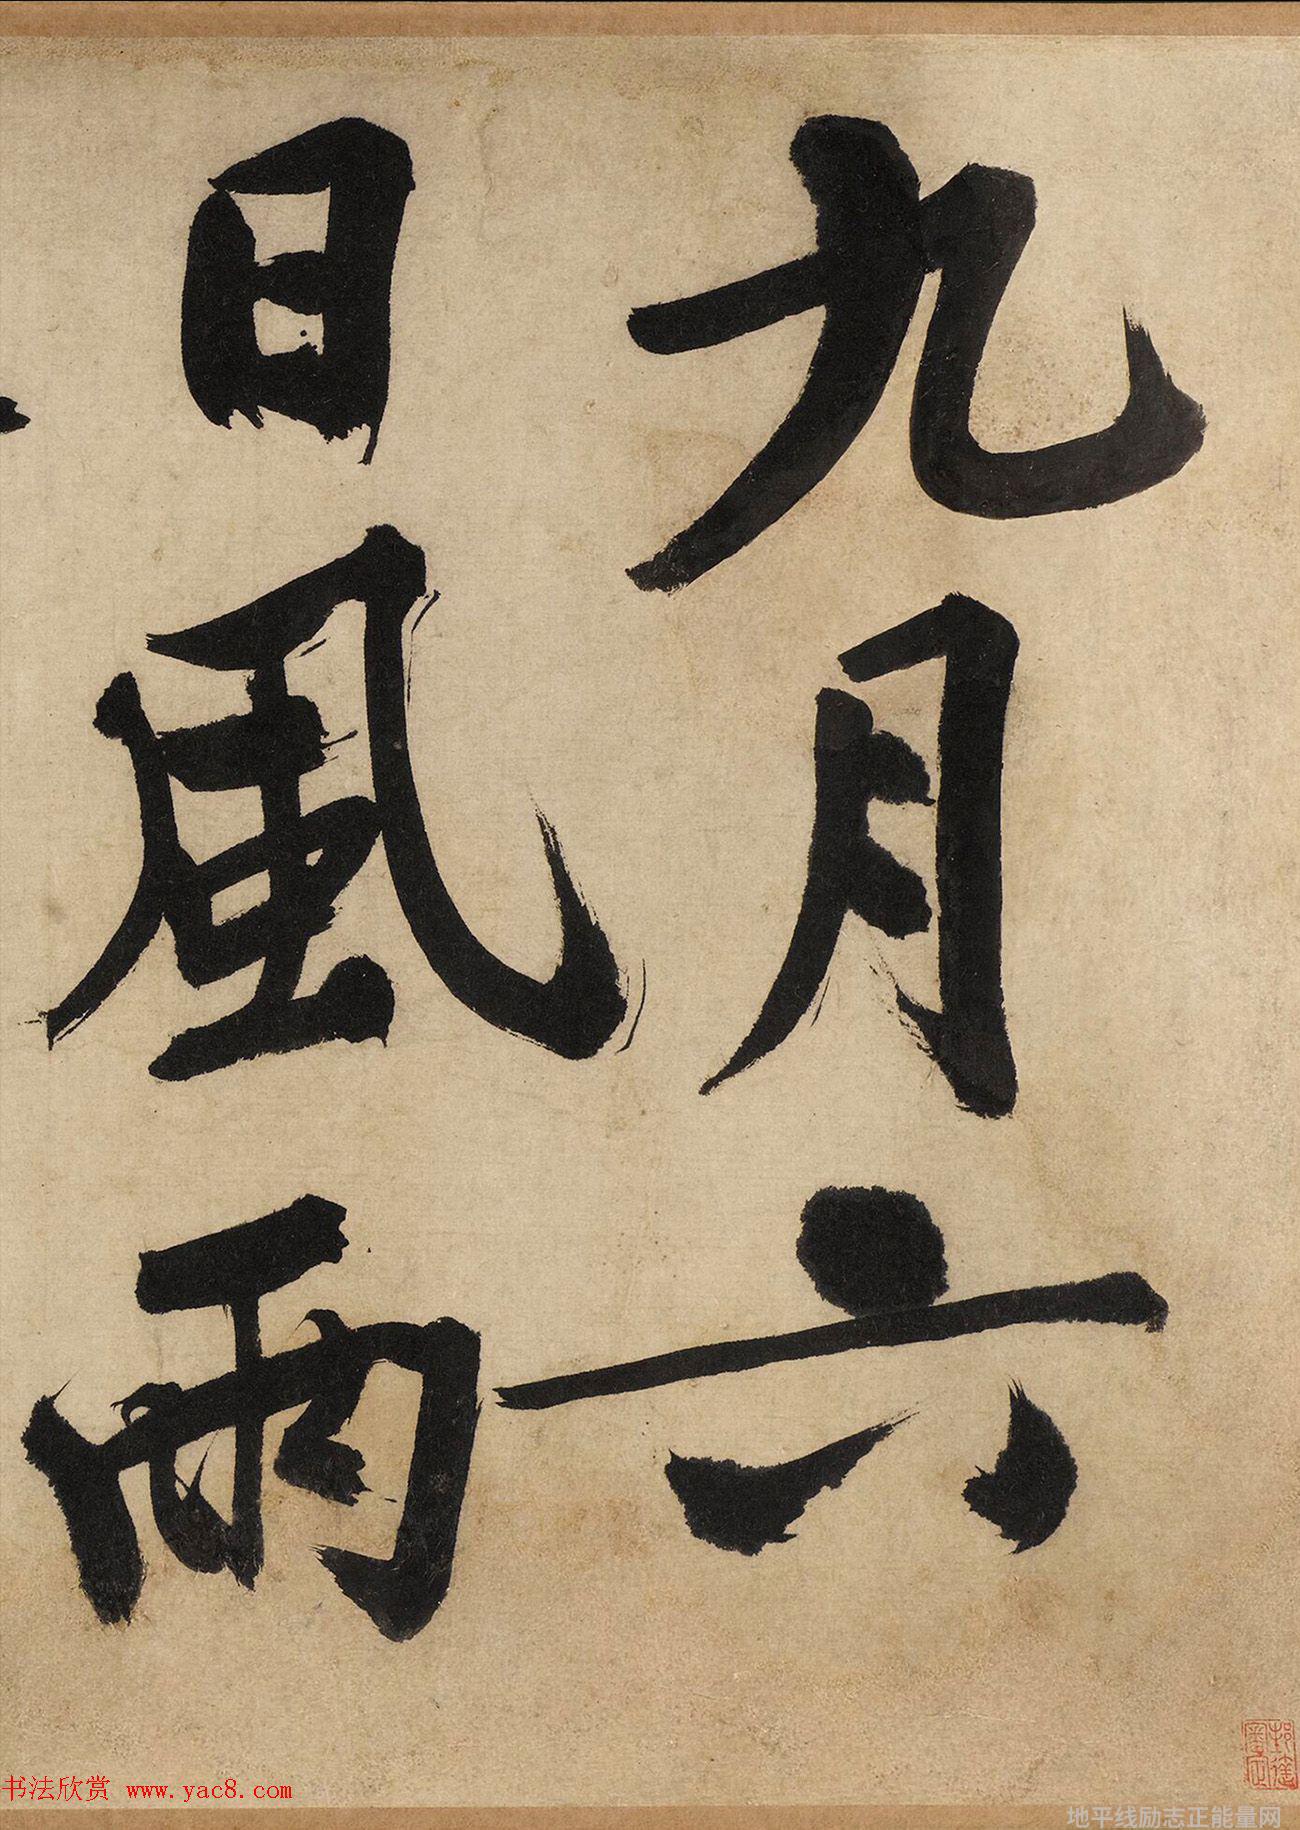 九月六
日風雨
书法欣赏 www.yac8.com
地平线励志正能量网